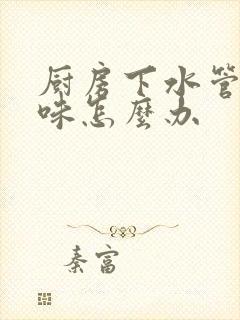 厨房下水管
味怎麽办
秦富